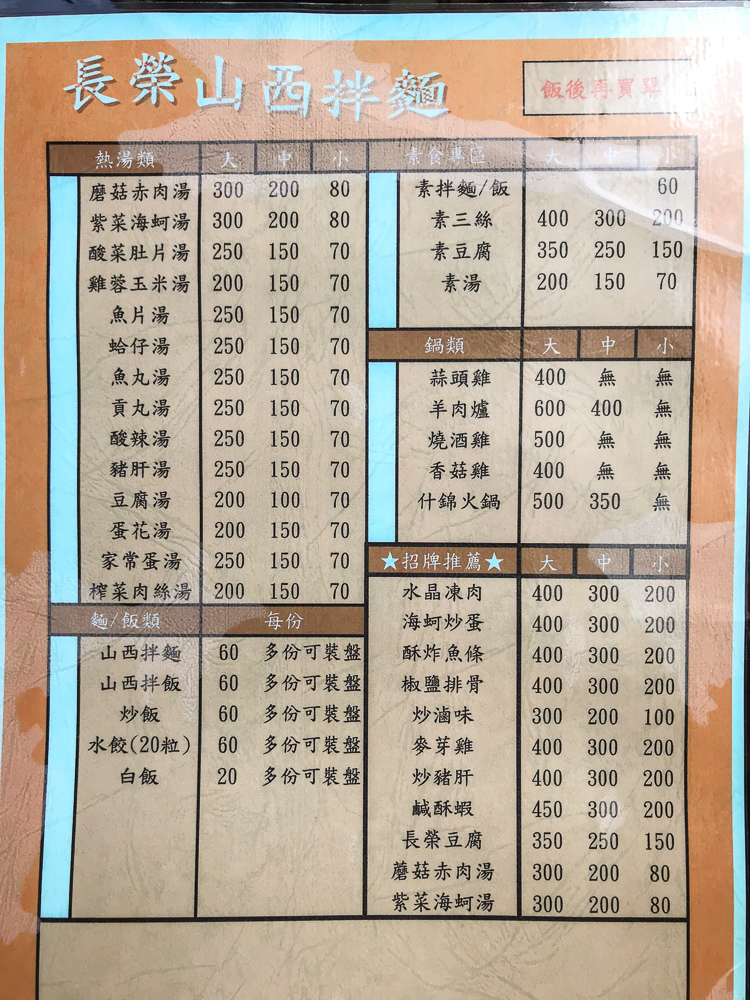 長榮山西拌麵
飯後再買單
熱湯類 大 中 小
磨菇赤肉湯 300 200 80
紫菜海蚵湯 300 200 80
酸菜肚片湯 250 150 70
雞蓉玉米湯 200 150 70
魚片湯 250 150 70
蛤仔湯 250 150 70
魚丸湯 250 150 70
貢丸湯 250 150 70
酸辣湯 250 150 70
豬肝湯 250 150 70
豆腐湯 200 100 70
蛋花湯 200 150 70
家常蛋湯 250 150 70
榨菜肉絲湯 200 150 70
麵/飯類 每份
山西拌麵 60 多份可裝盤
山西拌飯 60 多份可裝盤
炒飯 60 多份可裝盤
水餃(20粒) 60 多份可裝盤
白飯 20 多份可裝盤
素食專區 大 中 小
素拌麵/飯 60
素三絲 400 300 200
素豆腐 350 250 150
素湯 200 150 70
鍋類 大 中 小
蒜頭雞 400 無 無
羊肉爐 600 400 無
燒酒雞 500 無 無
香菇雞 400 無 無
什錦火鍋 500 350 無
★招牌推薦★ 大 中 小
水晶凍肉 400 300 200
海蚵炒蛋 400 300 200
酥炸魚條 400 300 200
椒鹽排骨 400 300 200
炒滷味 300 200 100
麥芽雞 400 300 200
炒豬肝 400 300 200
鹹酥蝦 450 300 200
長榮豆腐 350 250 150
蘑菇赤肉湯 300 200 80
紫菜海蚵湯 300 200 80